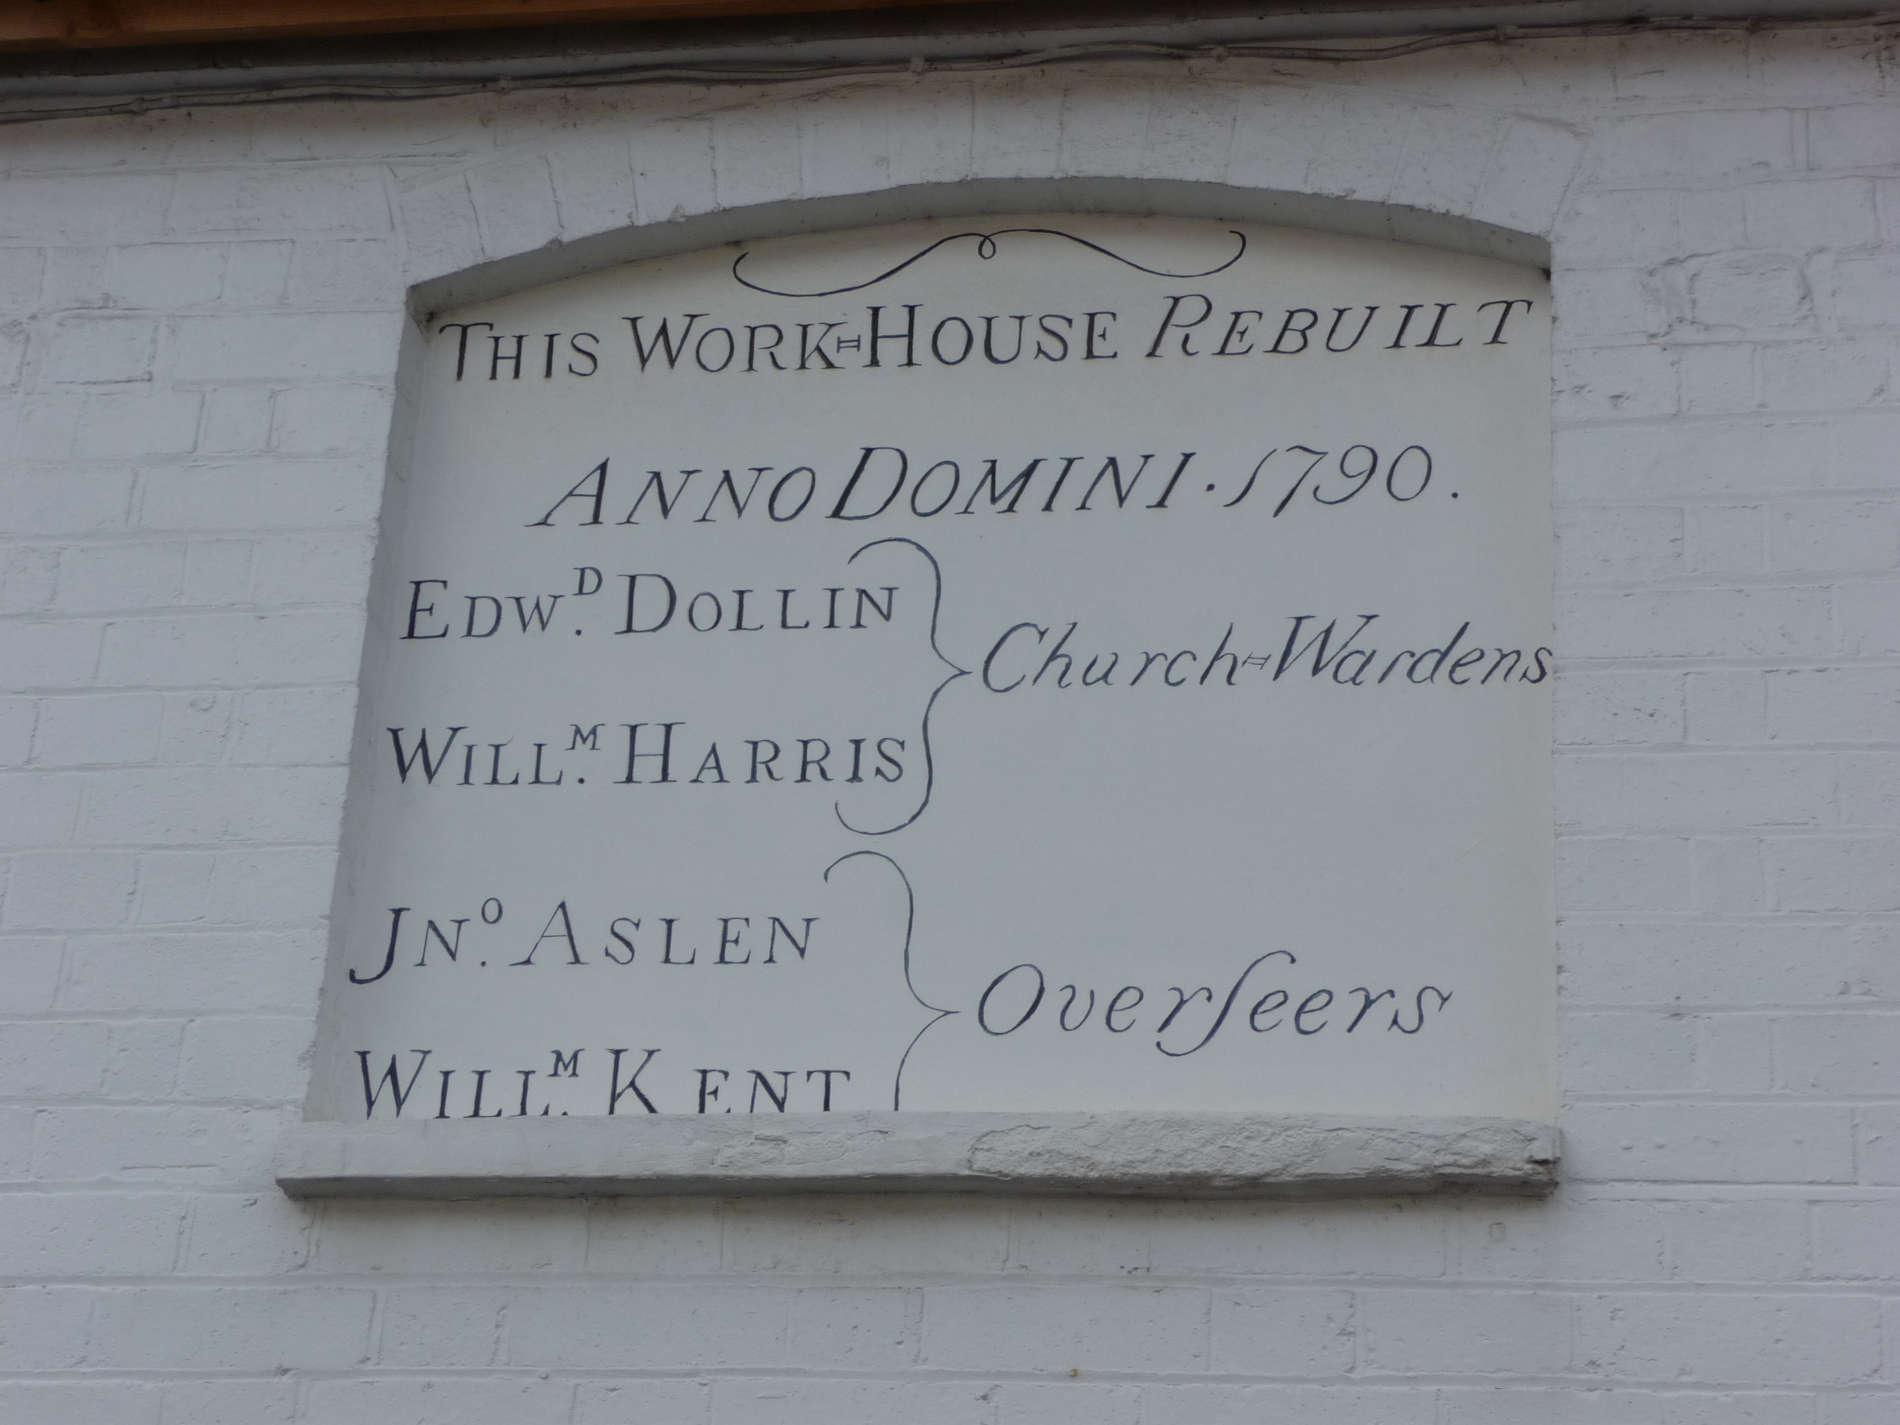 THIS WORK=HOUSE REBUILT
ANNO DOMINI · 1790.
EDW.ᴰ DOLLIN
Church=Wardens
WILL.ᴹ HARRIS
JN.º ASLEN
Overſeers
WILL.ᴹ KENT